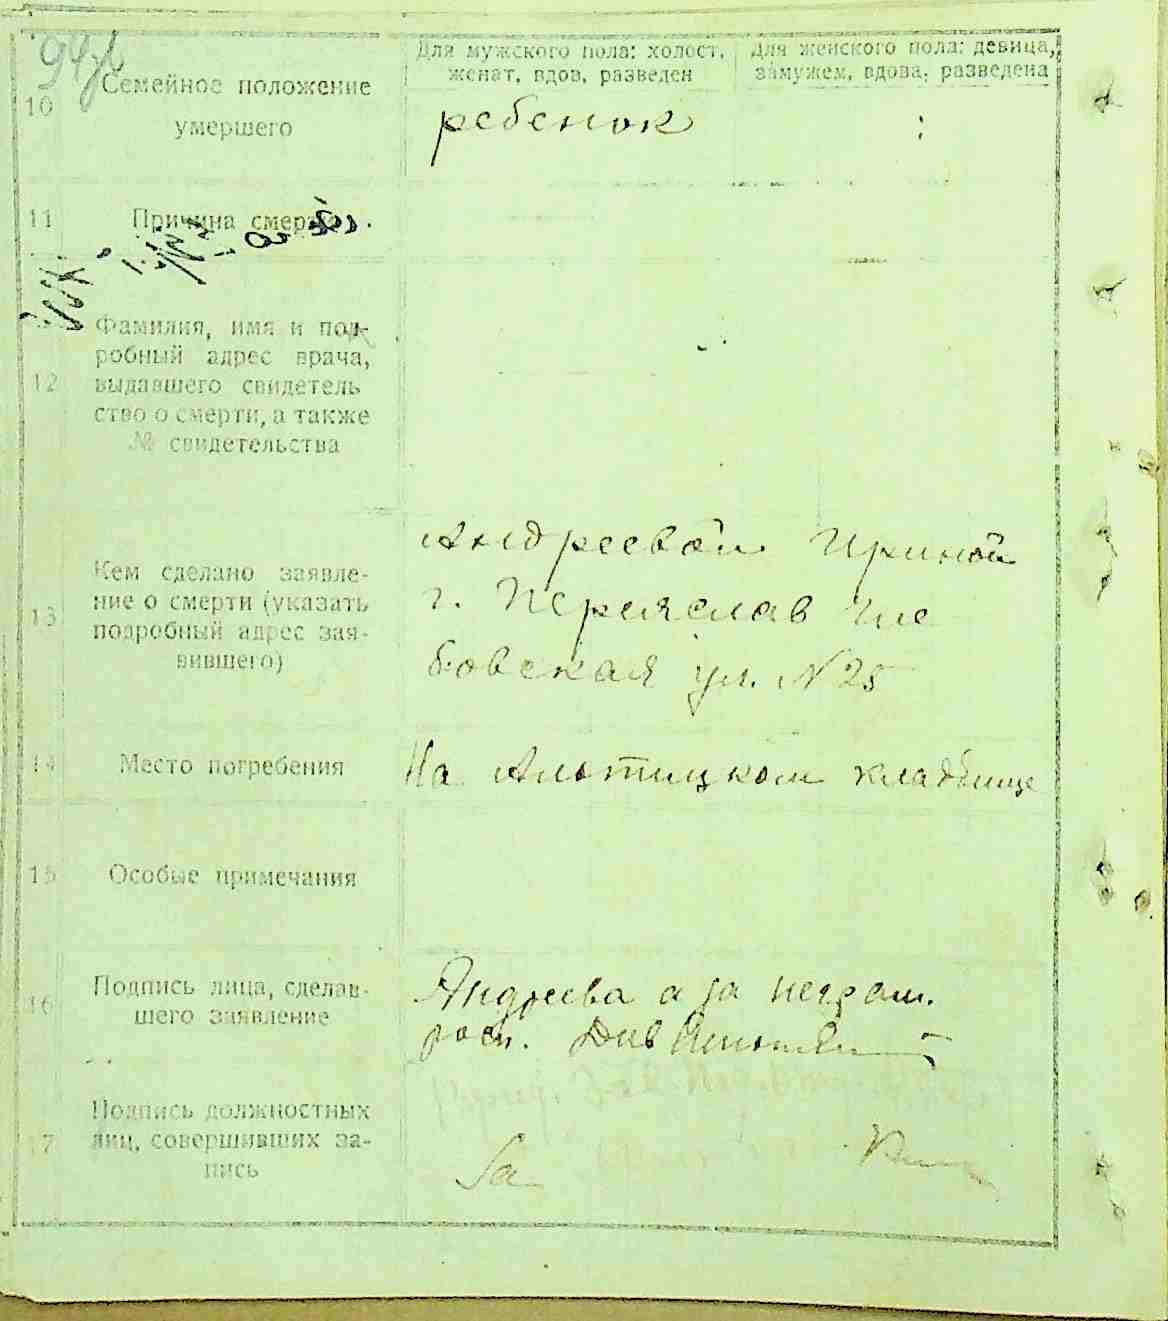 Для мужского пола: холост, женат, вдов, разведен
Для женского пола: девица, замужем, вдова, разведена
10 Семейное положение
умершего
ребенок
11 Причина смерти
12 Фамилия, имя и под-
робный адрес врача,
выдавшего свидетель
ство о смерти, а также
№ свидетельства
13 Кем сделано заявле-
ние о смерти (указать
подробный адрес зая-
вившего)
Андреевой Ириной
г. Переяслав
бовская ул. N 25
14 Место погребения
На Альтицком кладбище
15 Особые примечания
16 Подпись лица, сделав-
шего заявление
Андреева а за неграм.
расп.
17 Подпись должностных
лиц, совершивших за-
пись
За